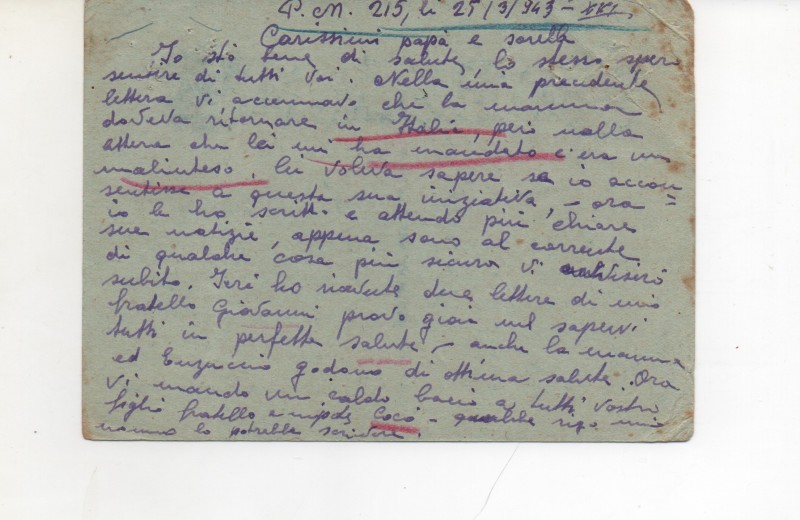 P. M. 215, li 25/3/943 - XXI.
Carissimi papà e sorella
Io sto bene di salute, lo stesso spero
sentire di tutti voi. Nella mia precedente
lettera vi accennavo che la mamma
doveva ritornare in Italia, però nella
lettera che lei mi ha mandato c'era un
malinteso, lei voleva sapere se io accon=
sentisse a questa sua iniziativa, - ora
io le ho scritto e attendo più chiare
sue notizie, appena sono al corrente
di qualche cosa più sicura vi avviserò
subito. Ieri ho ricevute due lettere di mio
fratello Giovanni provo gioia nel sapervi
tutti in perfetta salute - anche la mamma
ed Enzuccio godono di ottima salute. Ora
vi mando un caldo bacio a tutti vostro
figlio fratello e nipote Cocò - qualche rigo mio
nonno lo potrebbe scrivere.